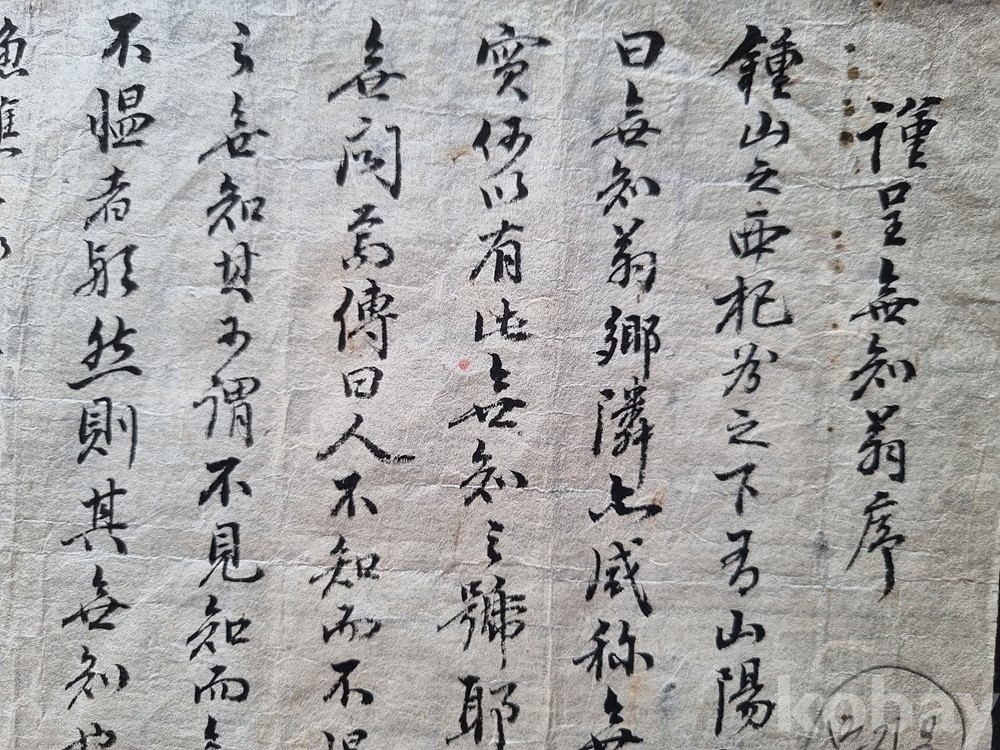 謹呈無知翁序
鍾山之西杞芥之下有山陽
曰無知翁鄉隣亦咸称無
實何以有此無知之號耶
無悶焉傳曰人不知而不慍
之無知其可謂不見知而無
不慍者歟然則其無知也
漁樵
kohay